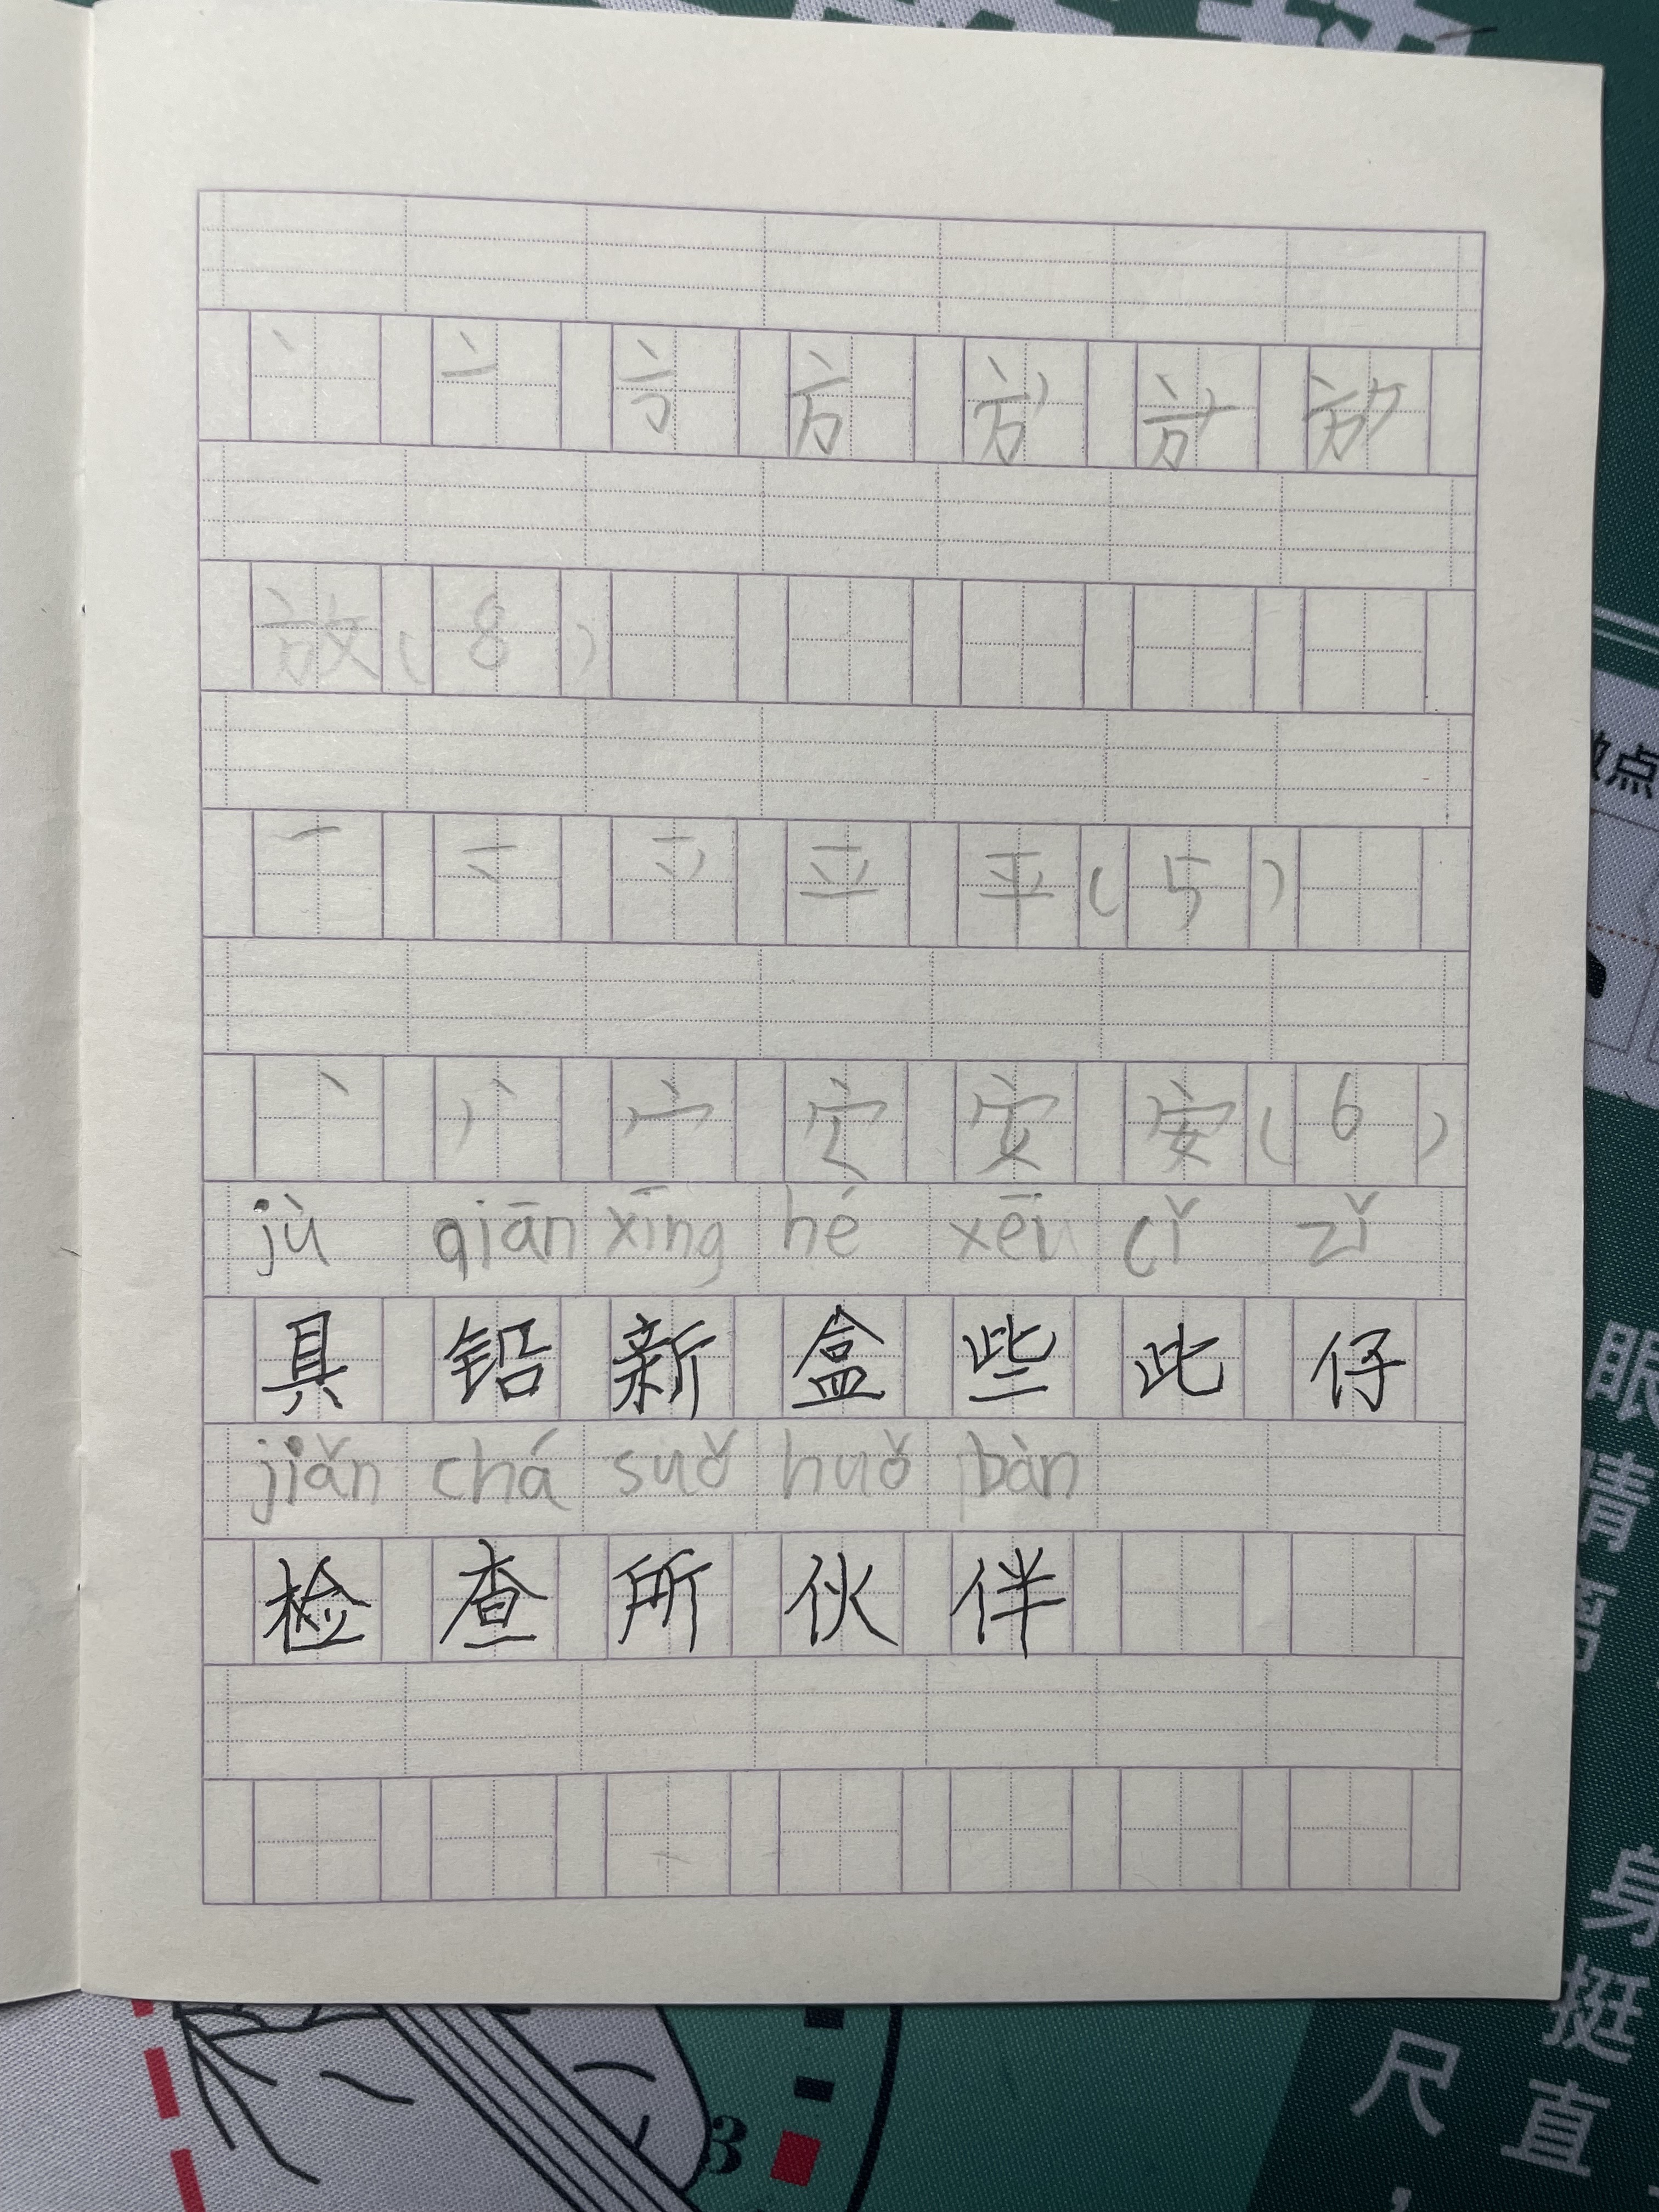 丶 亠 方 放
放(8)
一 平(5)
丶 宀 安(6)
jù qiān xīng hé xēi cǐ zǐ
具 铅 新 盒 些 此 仔
jiǎn chá suǒ huǒ bàn
检 查 所 伙 伴
点
眼
睛
身
挺
直
尺
3